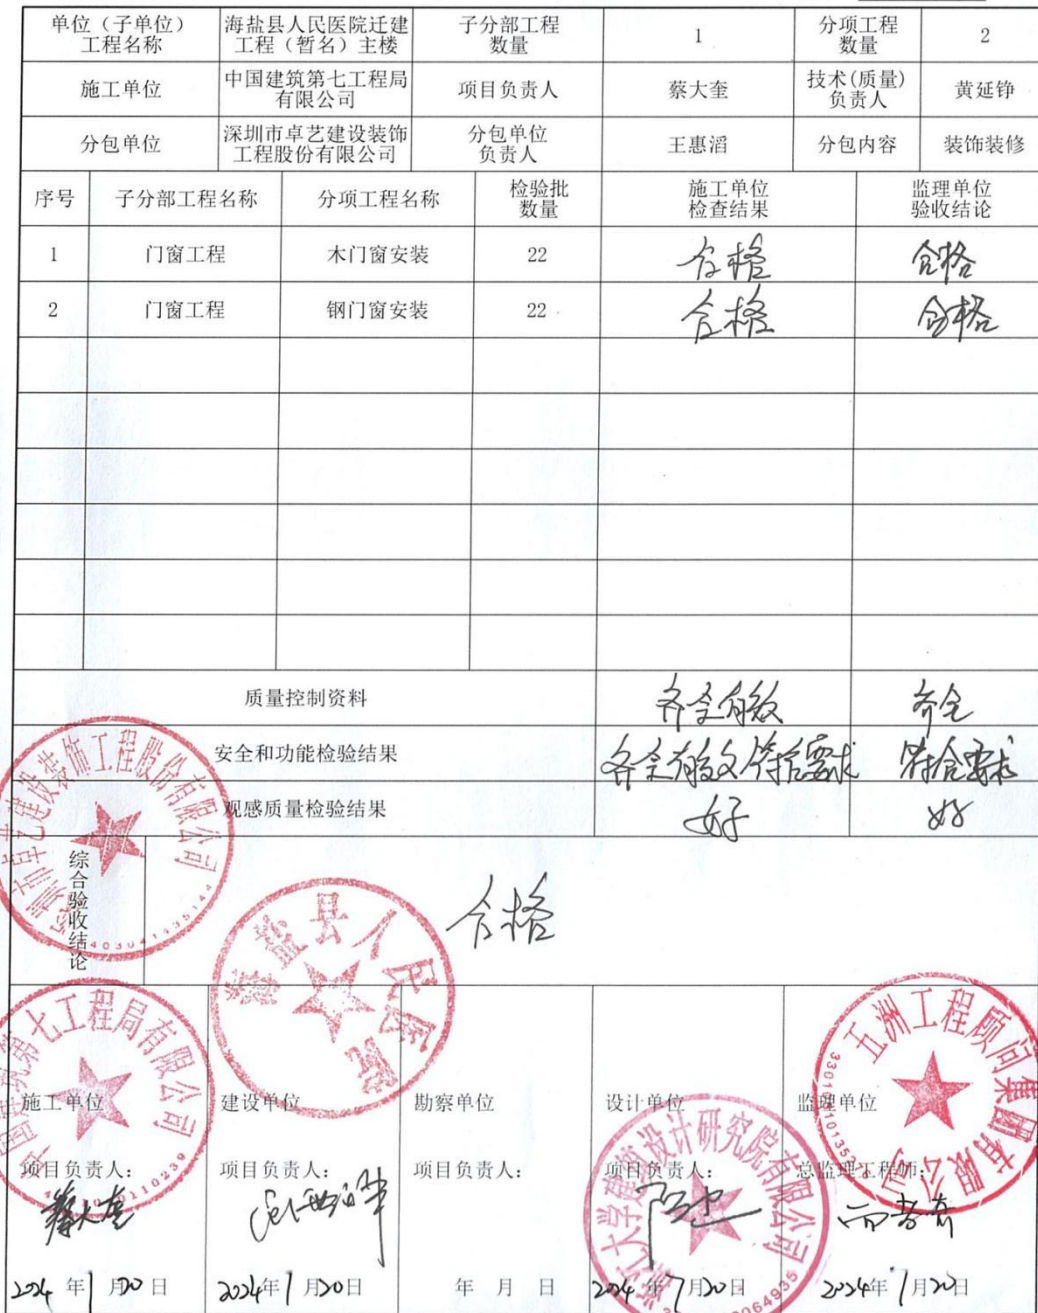 单位（子单位）
工程名称
海盐县人民医院迁建
工程（暂名）主楼
子分部工程
数量
1
分项工程
数量
2
施工单位
中国建筑第七工程局
有限公司
项目负责人
蔡大奎
技术(质量)
负责人
黄延铮
分包单位
深圳市卓艺建设装饰
工程股份有限公司
分包单位
负责人
王惠滔
分包内容
装饰装修
序号
子分部工程名称
分项工程名称
检验批
数量
施工单位
检查结果
监理单位
验收结论
1
门窗工程
木门窗安装
22
合格
合格
2
门窗工程
钢门窗安装
22
合格
合格
质量控制资料
齐全有效
齐全
安全和功能检验结果
齐全有效符合要求
符合要求
观感质量检验结果
好
好
深圳市卓艺建设装饰工程股份有限公司
综合验收结论
合格
海盐县人民医院
中国建筑第七工程局有限公司
五洲工程顾问集团有限公司
浙江大学建筑设计研究院有限公司
施工单位
建设单位
勘察单位
设计单位
监理单位
项目负责人：
项目负责人：
项目负责人：
项目负责人：
总监理工程师：
蔡大奎
2024 年 1 月 20 日
2024 年 1 月 20 日
年 月 日
2024 年 1 月 20 日
2024 年 1 月 20 日